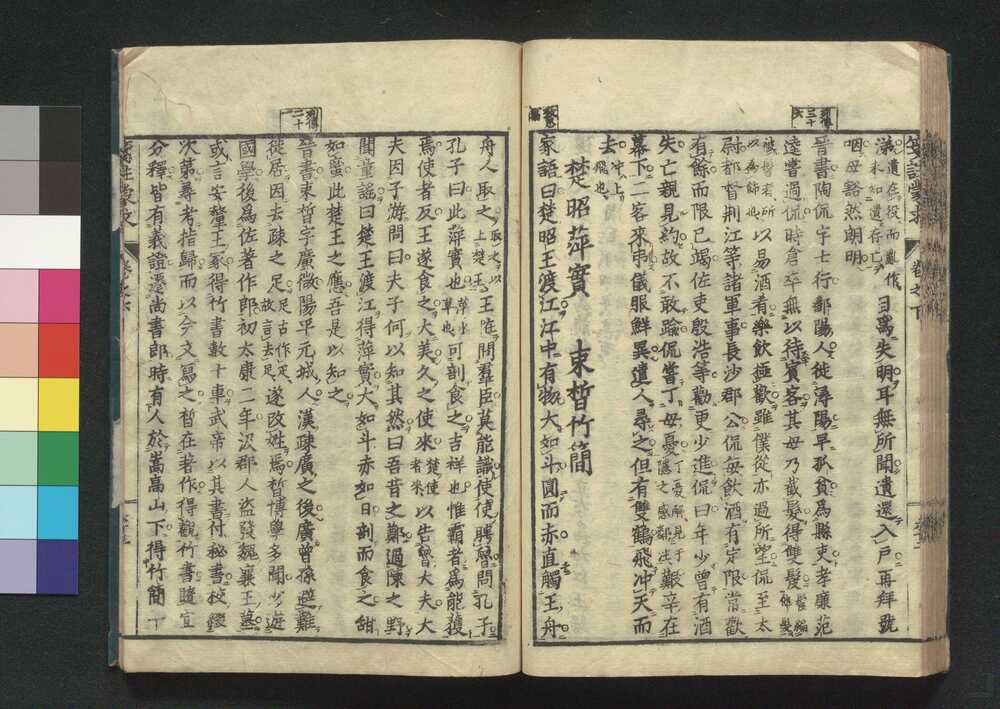 滿遺爲投而亂作目爲失明耳無所聞遺還入戸再拜號
咽母豁然朗明
晉書陶侃字士行鄱陽人徙潯陽早孤貧爲縣吏孝廉范
逵嘗過侃時倉卒無以待賓客其母乃截髮得雙髲
以易酒肴樂飲極歡雖僕從亦過所望侃至太
尉都督荊江等諸軍事長沙郡公侃毎飲酒有定限常歡
有餘而限已竭佐吏殷浩等勸更少進侃曰年少曾有酒
失亡親見約故不敢踰侃嘗丁母憂艱辛在
幕下二客來弔儀服鮮異遣人尋之但有雙鶴飛冲天而
去
楚昭萍實 束皙竹簡
家語曰楚昭王渡江江中有物大如斗圓而赤直觸王舟
舟人取之王恠問羣臣莫能識使使聘魯問孔子
孔子曰此萍實也可剖食之吉祥也惟霸者爲能獲
焉使者反王遂食之大美久之使來以告魯大夫大
夫因子游問曰夫子何以知其然曰吾昔之鄭過陳之野
聞童謡曰楚王渡江得萍實大如斗赤如日剖而食之甜
如蜜此楚王之應吾是以知之
晉書束皙字廣微陽平元城人漢疎廣之後廣曾孫避難
徙居因去疎之足遂改姓焉皙博學多聞少遊
國學後爲佐著作郎初太康二年汲郡人盜發魏襄王墓
或言安釐王冢得竹書數十車武帝以其書付秘書校綴
次第尋考指歸而以今文寫之皙在著作得觀竹書隨宜
分釋皆有義證遷尚書郎時有人於嵩高山下得竹簡一